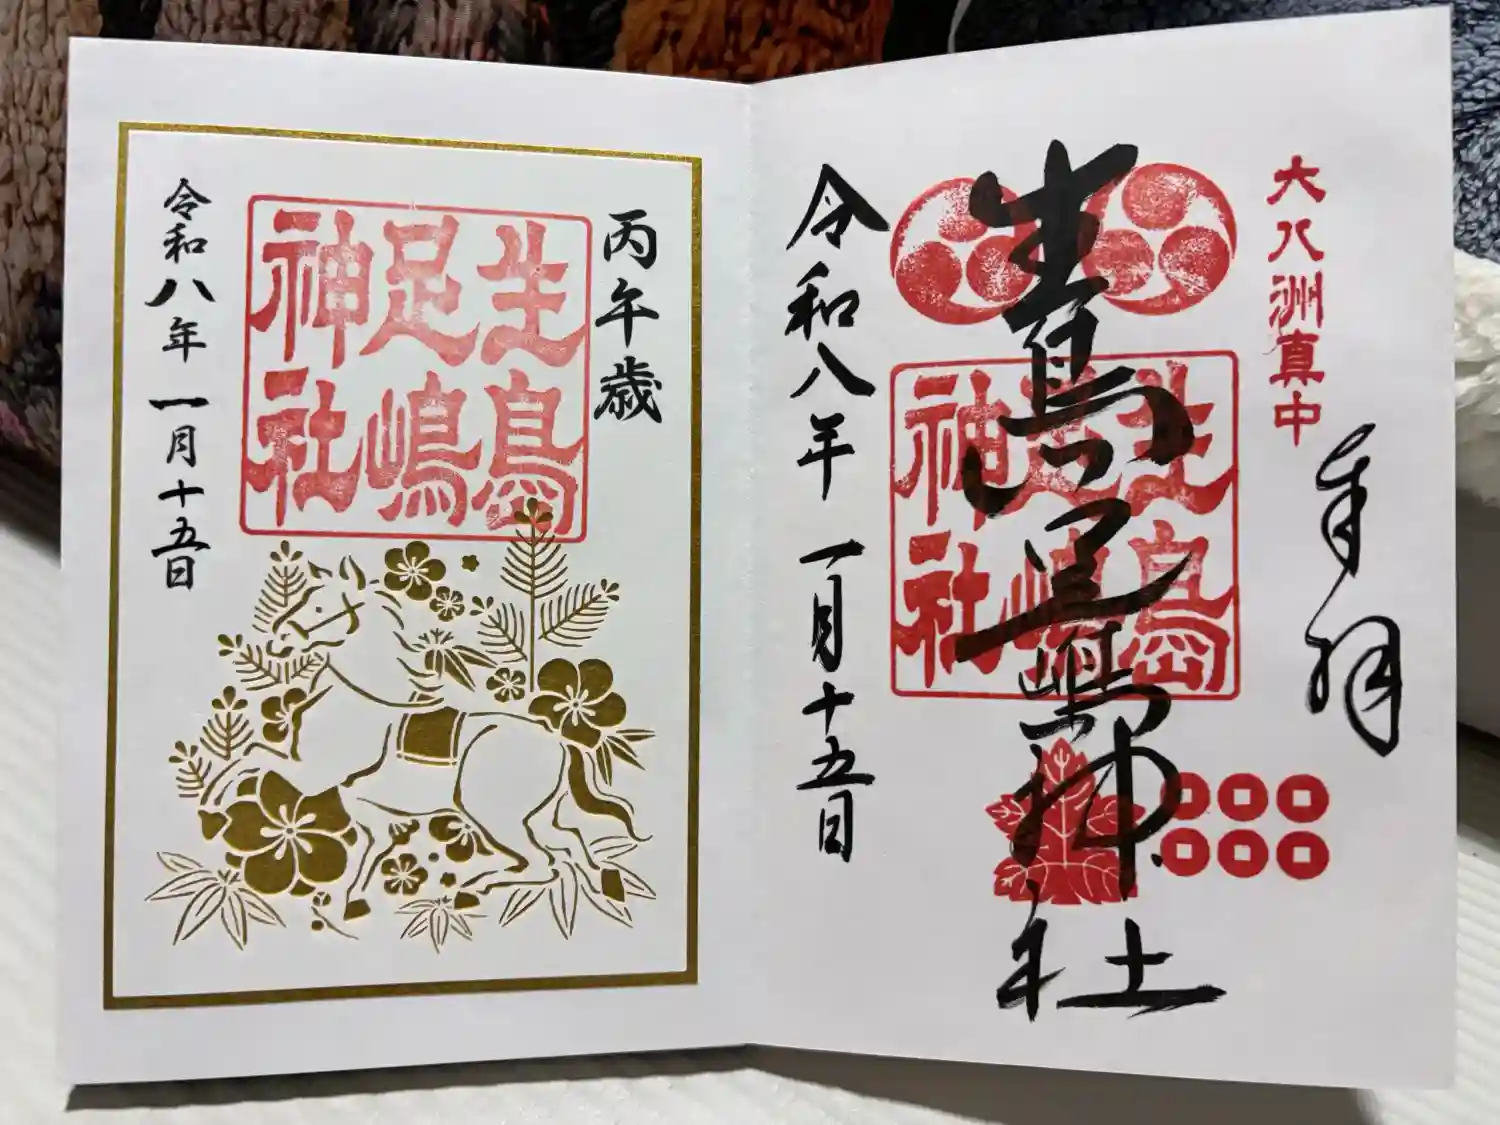 大八洲真中
奉拝
生島足島神社
生島
足嶋
神社
令和八年 一月十五日
丙午歳
生島
足嶋
神社
令和八年 一月十五日